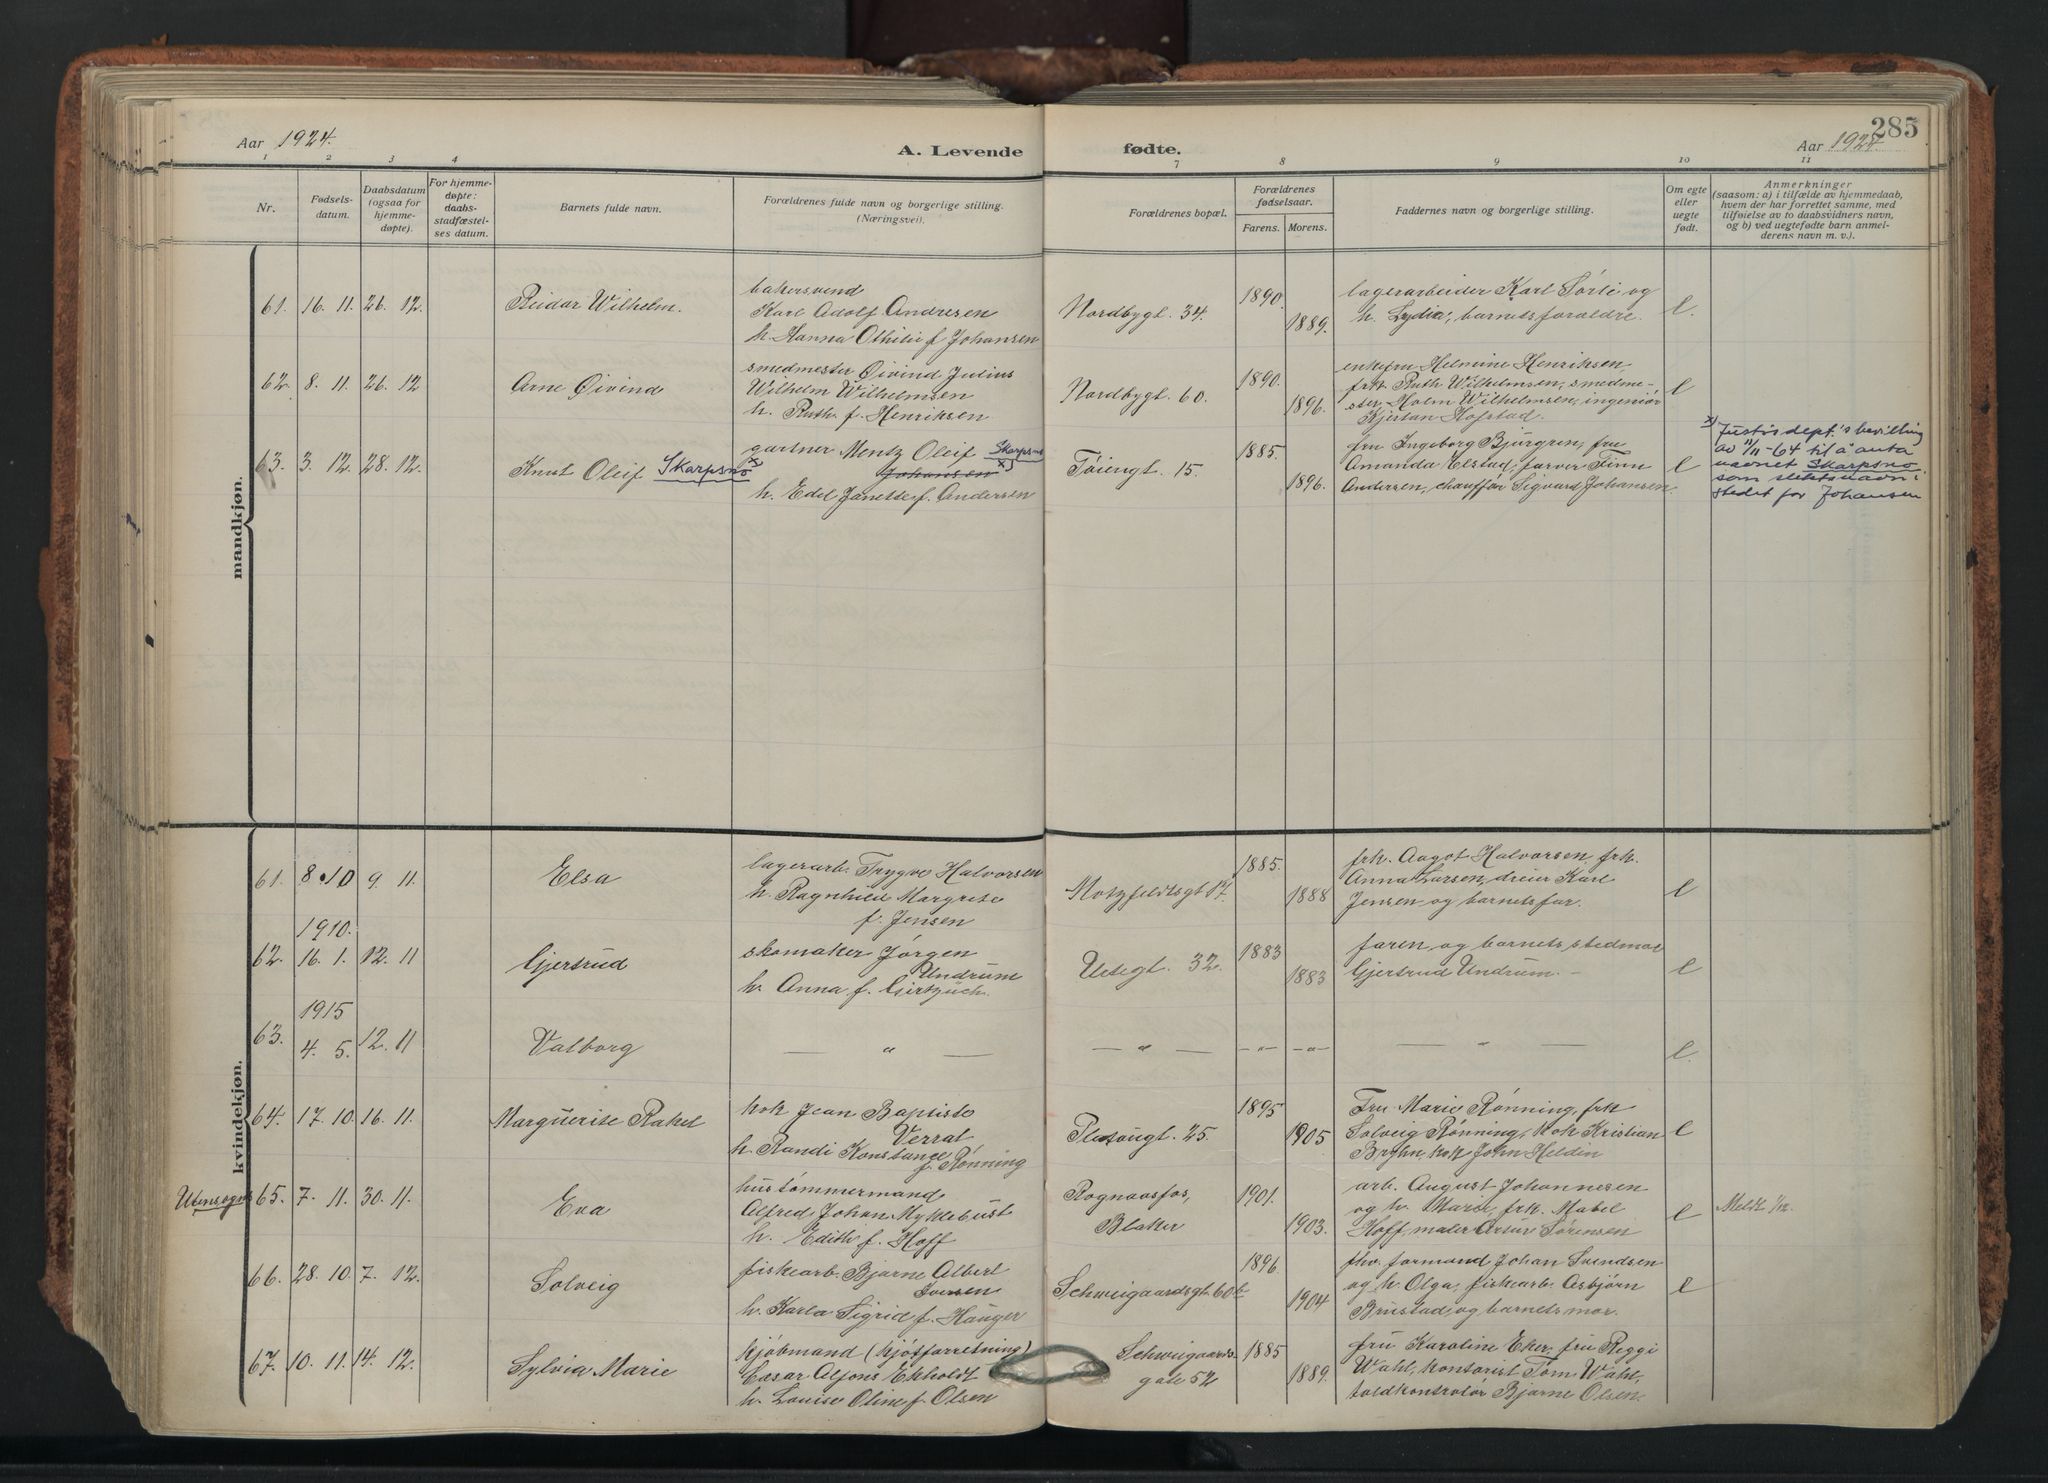 285
Aar 1924.
A. Levende fødte.
Aar 1924.
1 2 3 4 7 8 9 10 11
Nr.
Fødsels-
datum.
Daabsdatum
(ogsaa for
hjemme-
døpte).
For hjemme-
døpte:
daabs-
stadfæstel-
ses datum.
Barnets fulde navn.
Forældrenes fulde navn og borgerlige stilling.
(Næringsvei).
Forældrenes bopæl.
Forældrenes
fødselsaar.
Farens. Morens.
Faddernes navn og borgerlige stilling.
Om egte
eller
uegte
født.
Anmerkninger
(saasom: a) i tilfælde av hjemmedaab,
hvem der har forrettet samme, med
tilføielse av to daabsvidners navn,
og b) ved uegtefødte barn anmel-
derens navn m. v.).
mandkjøn.
61. 16. 11. 26. 12.
Reidar Wilhelm.
bakersvend
Karl Adolf Andresen
h. Hanna Othilie f Johansen
Nordbygt. 34.
1890.
1889.
lagerarbeider Karl Sørli og
h. Lydia, barnets forældre.
e.
62. 8. 11. 26. 12
Arne Øivind
smedmester Øivind Julius
Wilhelm Wilhelmsen
h. Ruth f. Henriksen
Nordbygt. 60.
1890.
1896.
enkefru Helmine Henriksen
frk. Ruth Wilhelmsen, smedme-
ster Holm Wilhelmsen, ingeniør
Kjertan Hofstad.
e
63. 3. 12. 28. 12.
Knut Oleif Skarpsno x)
gartner Mentz Oleif Skarpsno
Johansen x)
h. Edel Janette f. Andersen
Tøiengt. 15.
1885.
1896.
fru Ingeborg Bjurgren, fru
Amanda Elstad, farver Finn
Andersen, chauffør Sigvard Johansen
e
x) Justisdept.'s bevilling
av 11/11-64 til å anta
navnet Skarpsno
som slektsnavn i
stedet for Johansen
kvindekjøn.
61. 8. 10 9. 11.
Elsa
lagerarb. Trygve Halvorsen
h. Ragnhild Margrete
f. Jensen
Motzfeldtsgt 17.
1885.
1888
frk. Aagot Halvorsen, frk.
Anna Larsen, dreier Karl
Jensen og barnets far.
e
1910.
62. 16. 1. 12. 11
Gjertrud
skomaker Jørgen
Undrum
h. Anna f.
Urtegt. 32.
1883
1883
faren og barnets stedmor
Gjertrud Undrum. -
e
1915
63. 4. 5. 12. 11
Valborg
— " —
— " —
— " —
— " —
— " —
e.
64. 17. 10. 16. 11.
Marguerite Rakel
kok Jean Baptiste
Verrat,
h. Randi Konstance
f. Rønning
Platougt. 25.
1895
1905
Fru Marie Rønning, frk
Solveig Rønning, kok Kristian
Bryhn, kok John Heldin
e
Utensogns 65. 7. 11. 30. 11.
Eva
hustømmermand
Alfred Johan Myklebust
h. Edith f. Hoff
Rognaasfos,
Blaker
1901.
1903.
arb. August Johannesen
og h. Marie, frk. Mabel
Hoff, maler Artur Sørensen
e
Meldt 1/12.
66. 28. 10. 7. 12.
Solveig
fiskearb. Bjarne Albert
Iversen
h. Karla Sigrid f. Hauger
Schweigaardsgt. 60b
1896
1904
fhv. formand Johan Svendsen
og h. Olga, fiskearb. Asbjørn
Brustad, og barnets mor.
e
67. 10. 11. 14. 12.
Sylvia Marie
kjøbmand (kjøtforretning)
Cæsar Alfons Ekholdt
h. Louise Oline f. Olsen
Schweigaards-
gate 52
1885
1889.
fru Karoline Eker, fru Reggi
Wahl, kontorist Tom Wahl,
toldkontrolør Bjarne Olsen.